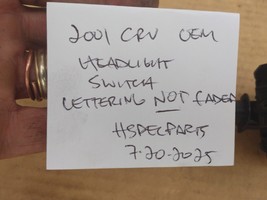 2001 CRV OEM
HEADLIGHT
SWITCH
LETTERING NOT FADED
HSPECPARTS
7-20-2025